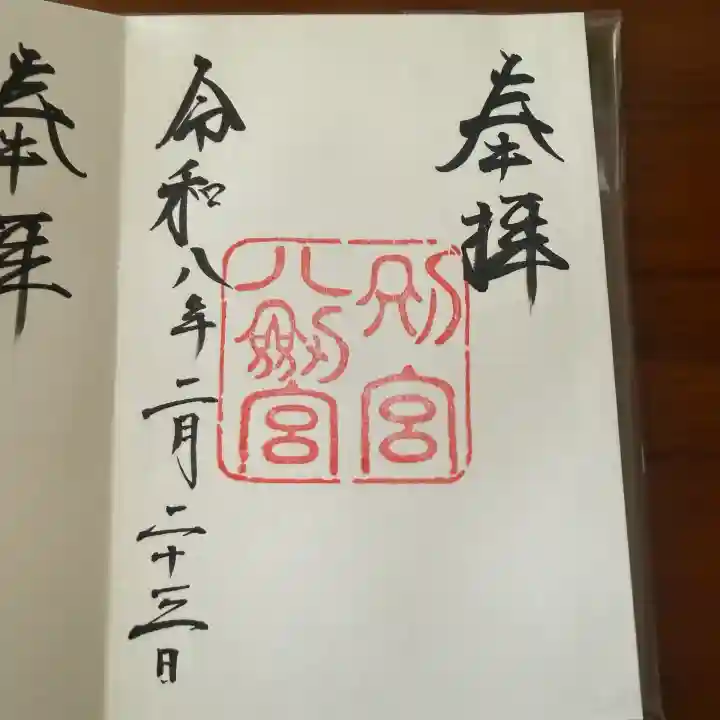 奉拝
別宮
八剱宮
令和八年二月二十三日
奉拝